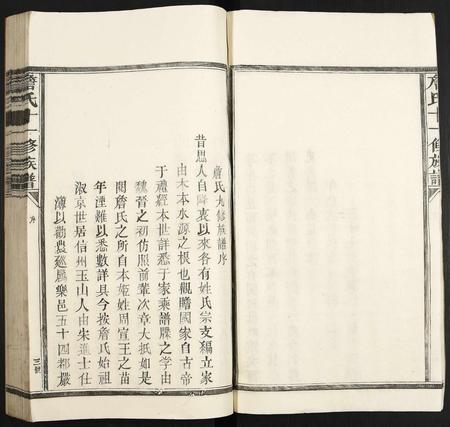 詹氏九修族譜序
昔思人自降衷以來各有姓氏宗支編立家
由木本水源之根也觀贍國家自古帝
于禮經本世詳悉于家乘譜牒之學由
魏晉之初仿照前輩次章大抵如是
閱詹氏之所自本姬姓周宣王之苗
年湮難以悉數詳具今按詹氏始祖
淑京世居信州玉山人由宋進士仕
薄以勸農廵厲樂邑五十四都嚴
詹氏十一修族譜
序
詹氏十一修族譜